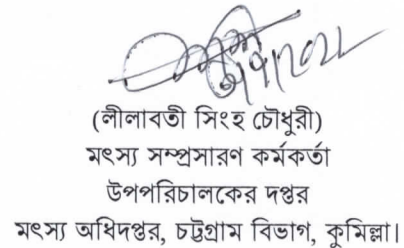 (লীলাবতী সিংহ চৌধুরী)
মৎস্য সম্প্রসারণ কর্মকর্তা
উপপরিচালকের দপ্তর
মৎস্য অধিদপ্তর, চট্টগ্রাম বিভাগ, কুমিল্লা।